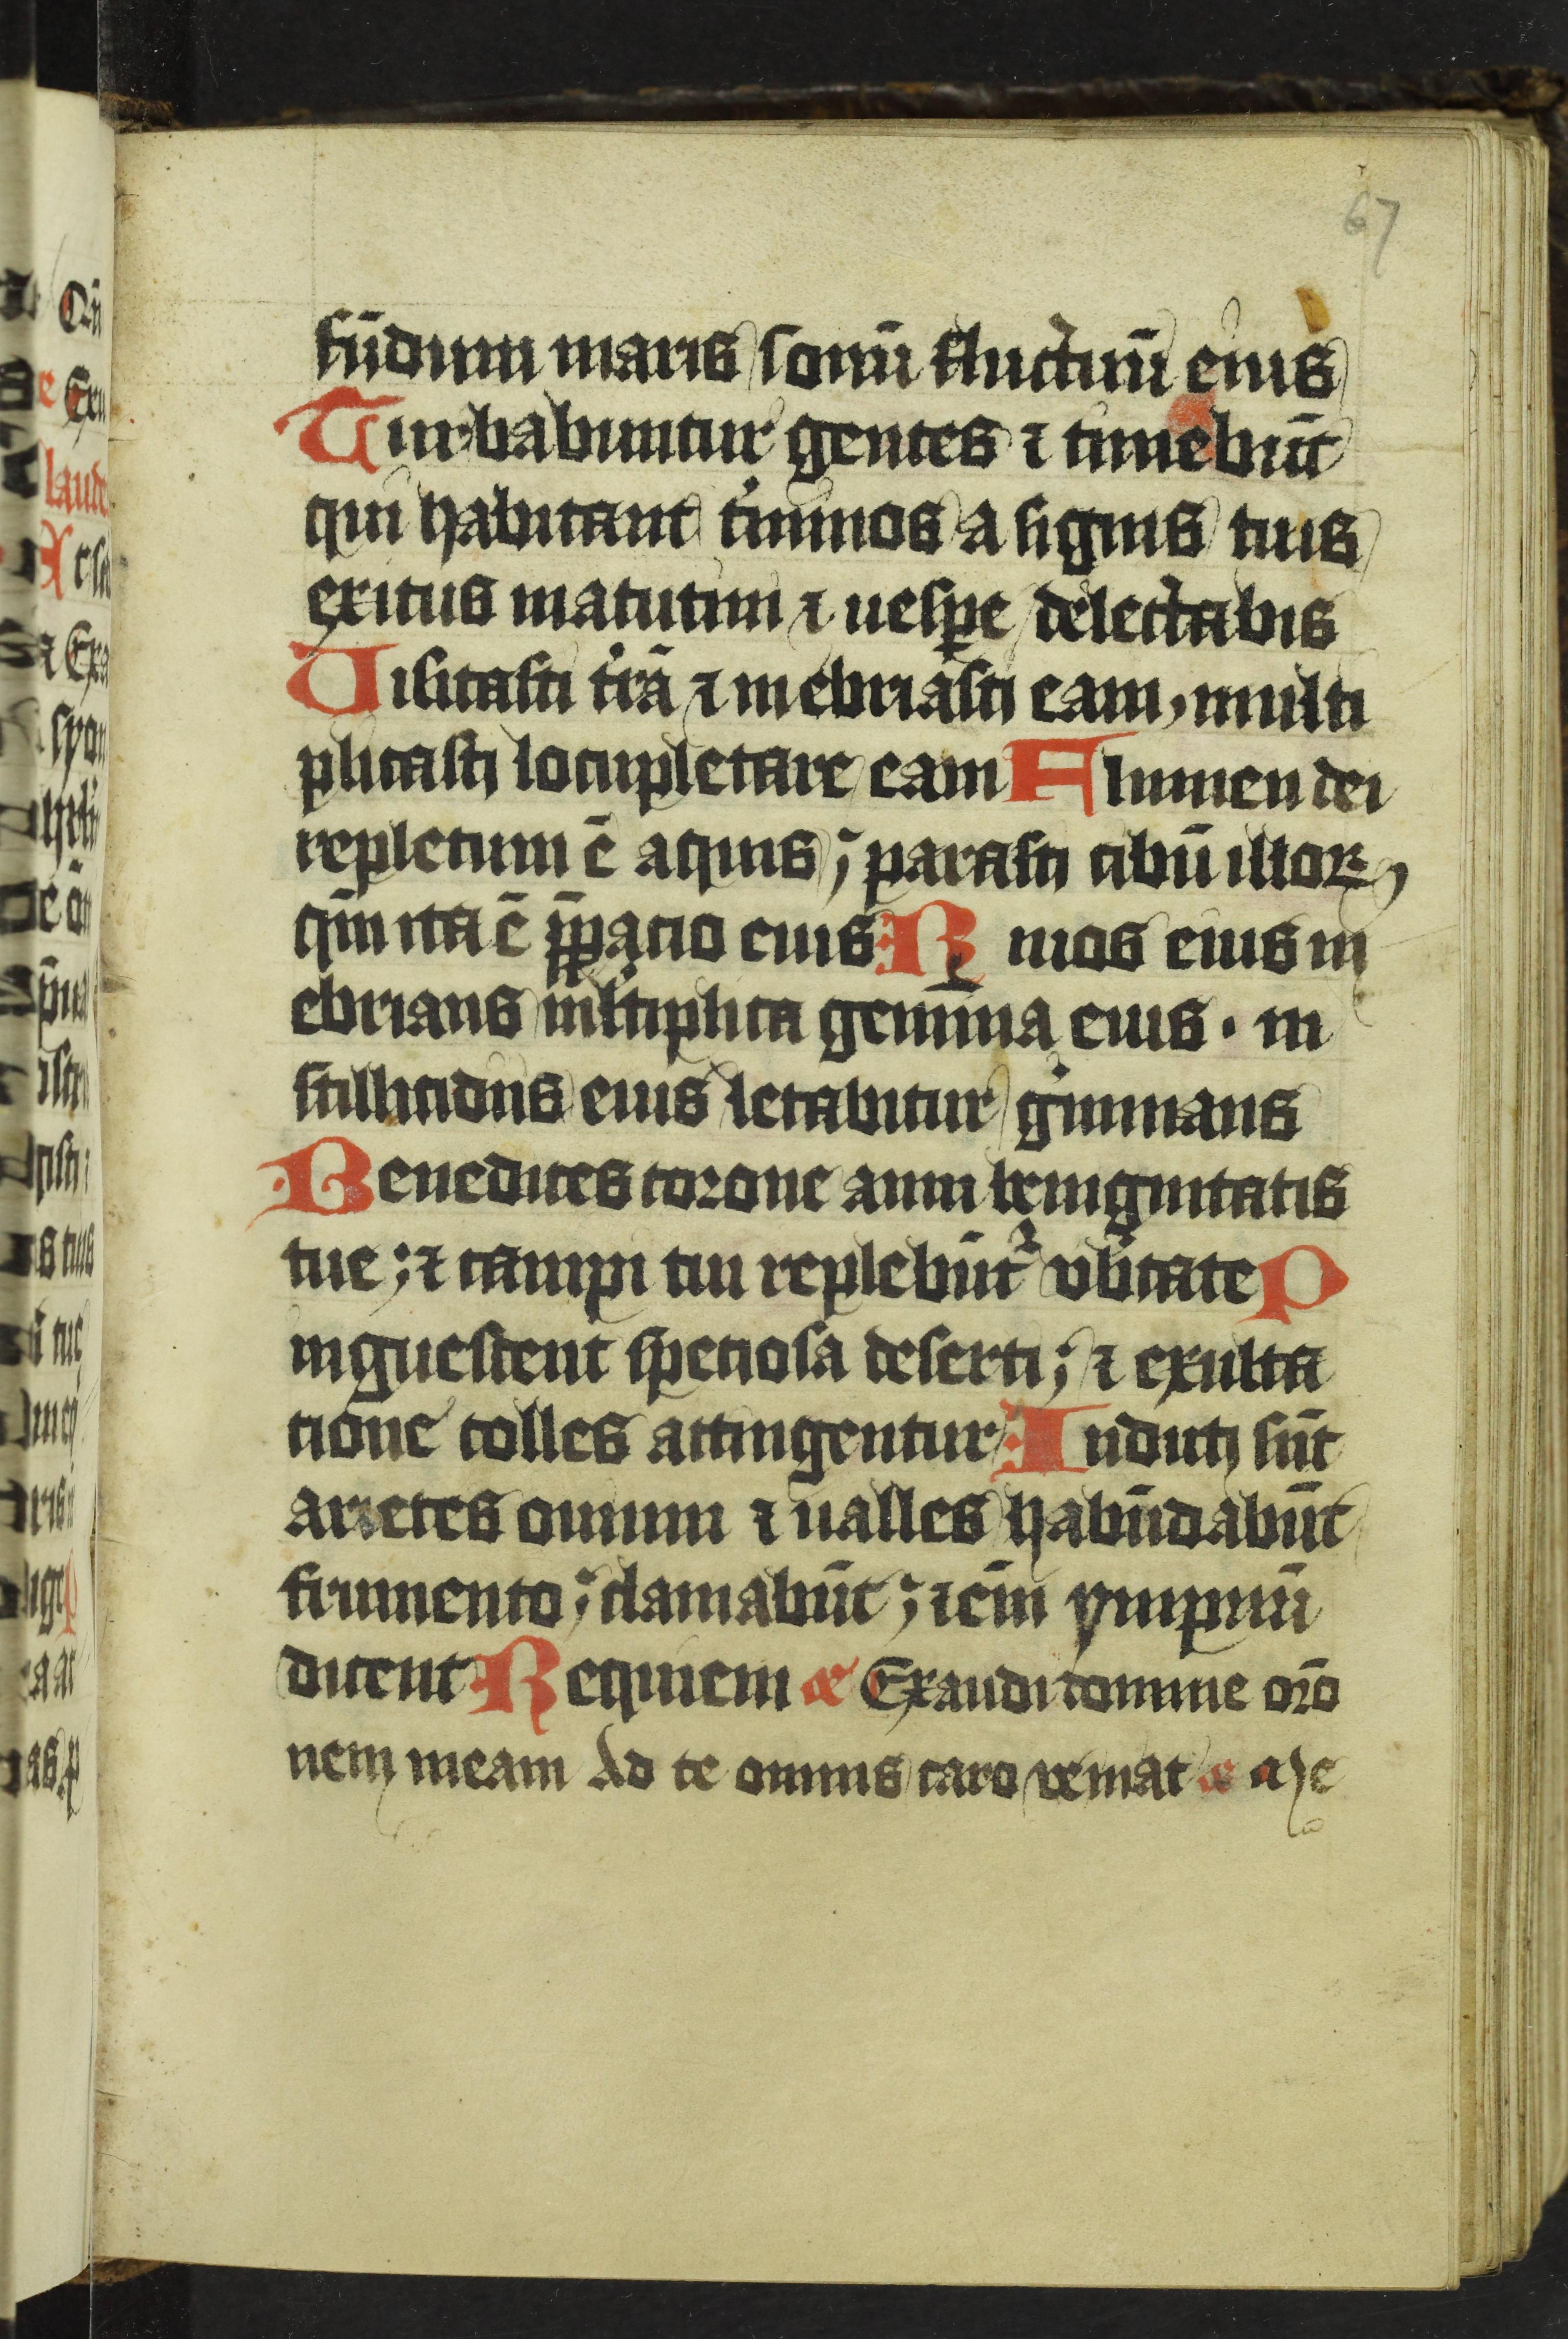 67
fūdum maris sonū fluctuū eius
Turbabuntur gentes ⁊ timebūt
qui habitant t̉minos a signis tuis
exitus matutini ⁊ uesꝑe delectabis
Uisitasti t̉rā ⁊ inebriasti eam, multi
plicasti locupletare eam Flumen dei
repletum ē aquis ; parasti cibū illoꝝ
qm̄ ita ē p̄ꝑatio eius Riuos eius in
ebrians ml̉tiplica genīmīa eius · in
stillicidiis eius letabitur g̉minans
Benedices corone anni benignitatis
tue ; ⁊ campi tui replebūt̉ vb̉tate P
inguescent speciosa deserti ; ⁊ exulta
tione colles attingentur Induti sūt
arietes ouium ⁊ ualles habūdabūt
frumento ; clamabūt ; ⁊em̄ ympnū
dicent Requiem a Exaudi domine orō
nem meam Ad te omnis caro veniat a